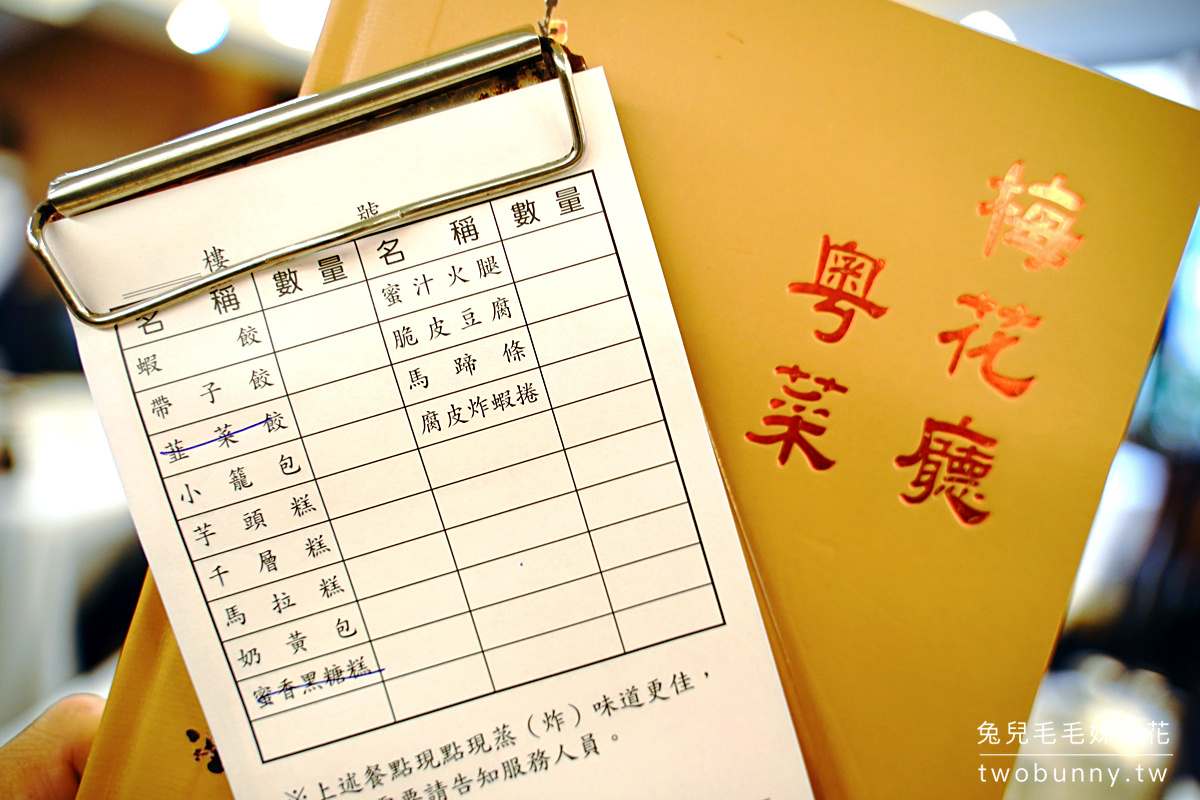 樓 號
名稱 數量 名稱 數量
蝦餃 蜜汁火腿
帶子餃 脆皮豆腐
韮菜餃 馬蹄條
小籠包 腐皮炸蝦捲
芋頭糕
千層糕
馬拉糕
奶黃包
蜜香黑糖糕
※上述餐點現點現蒸(炸)味道更佳,
請告知服務人員。
梅花廳
粵菜
兔兒毛毛 花
twobunny.tw